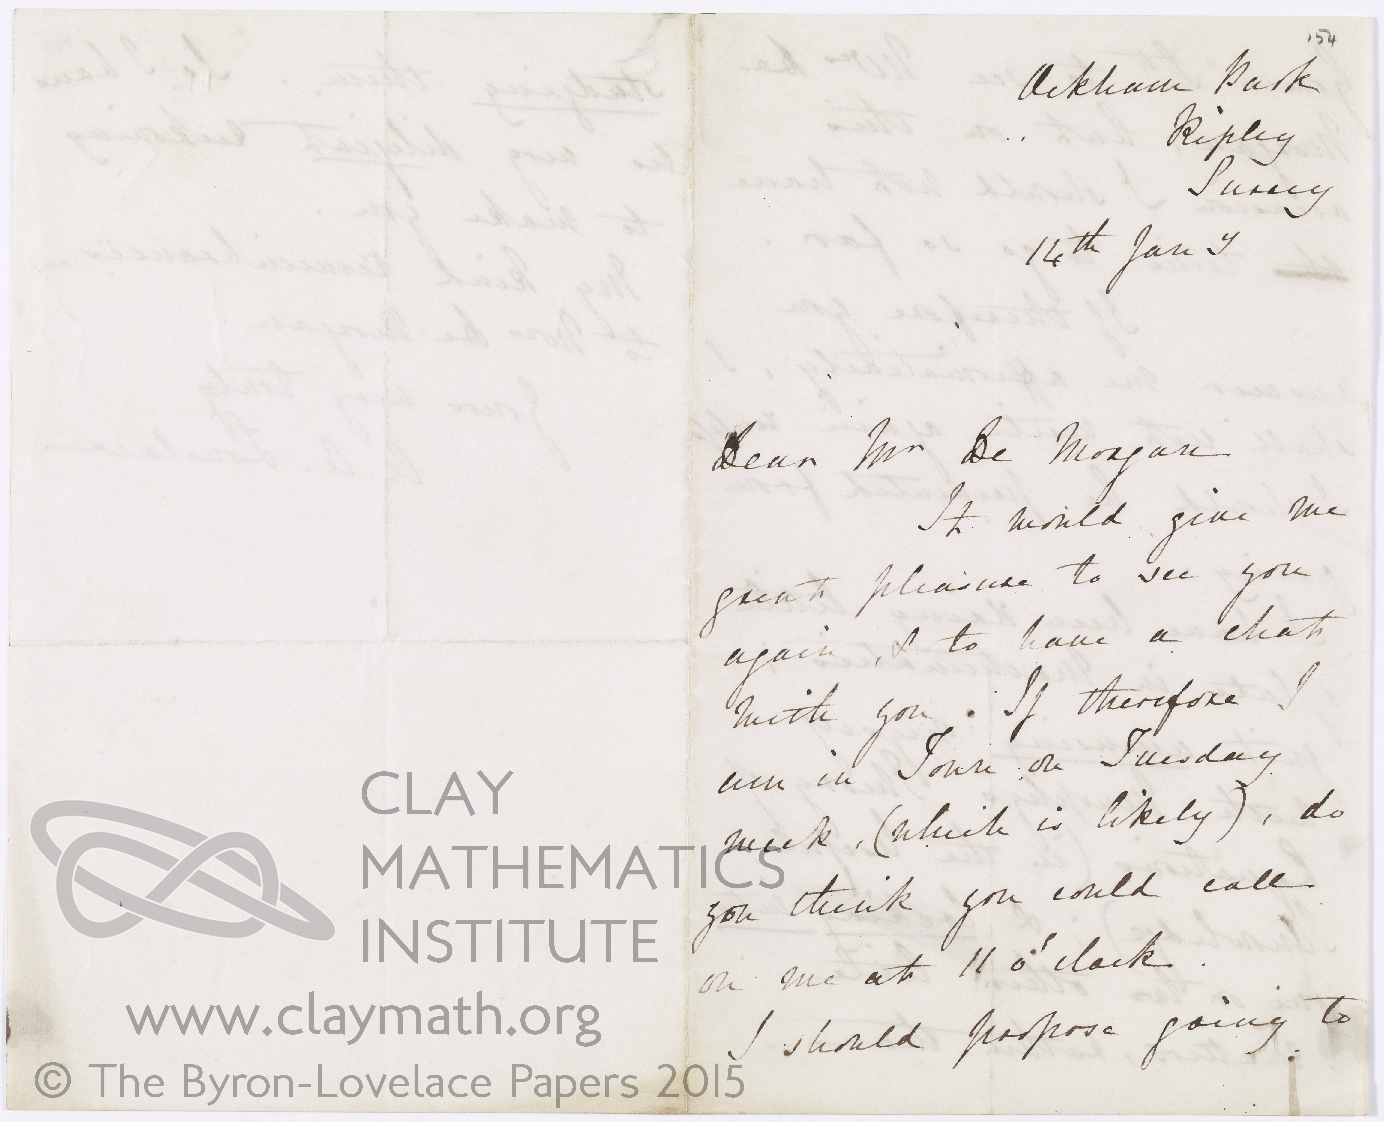 154
Ockham Park
Ripley
Surrey
14th Jany
Dear Mr De Morgan
It would give me
great pleasure to see you
again, & to have a chat
with you. If therefore I
am in Town on Tuesday
week, (which is likely), do
you think you could call
on me at 11 o'clock.
I should propose going to
CLAY
MATHEMATICS
INSTITUTE
www.claymath.org
© The Byron-Lovelace Papers 2015